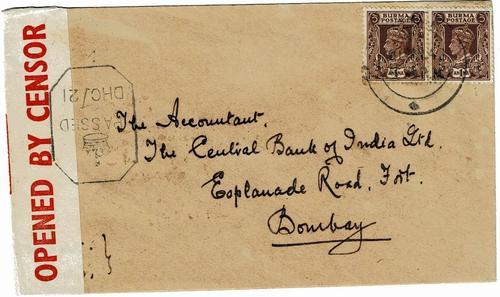 OPENED BY CENSOR
PASSED
DHC/21
BURMA
POSTAGE
BURMA
POSTAGE
The Accountant.
The Central Bank of India Ltd.
Esplanade Road, Fort.
Bombay